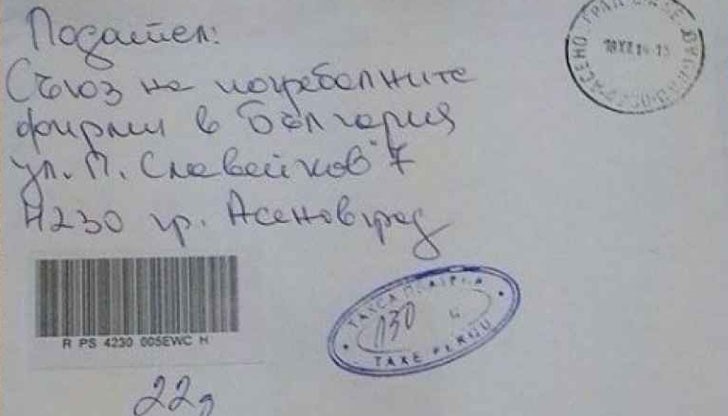 Подател:
Съюз на погребалните
фирми в България
ул. П. Славейков 7
4230 гр. Асеновград
R PS 4230 005EWC H
ТАКСА П
130
TAXE PERÇU
22